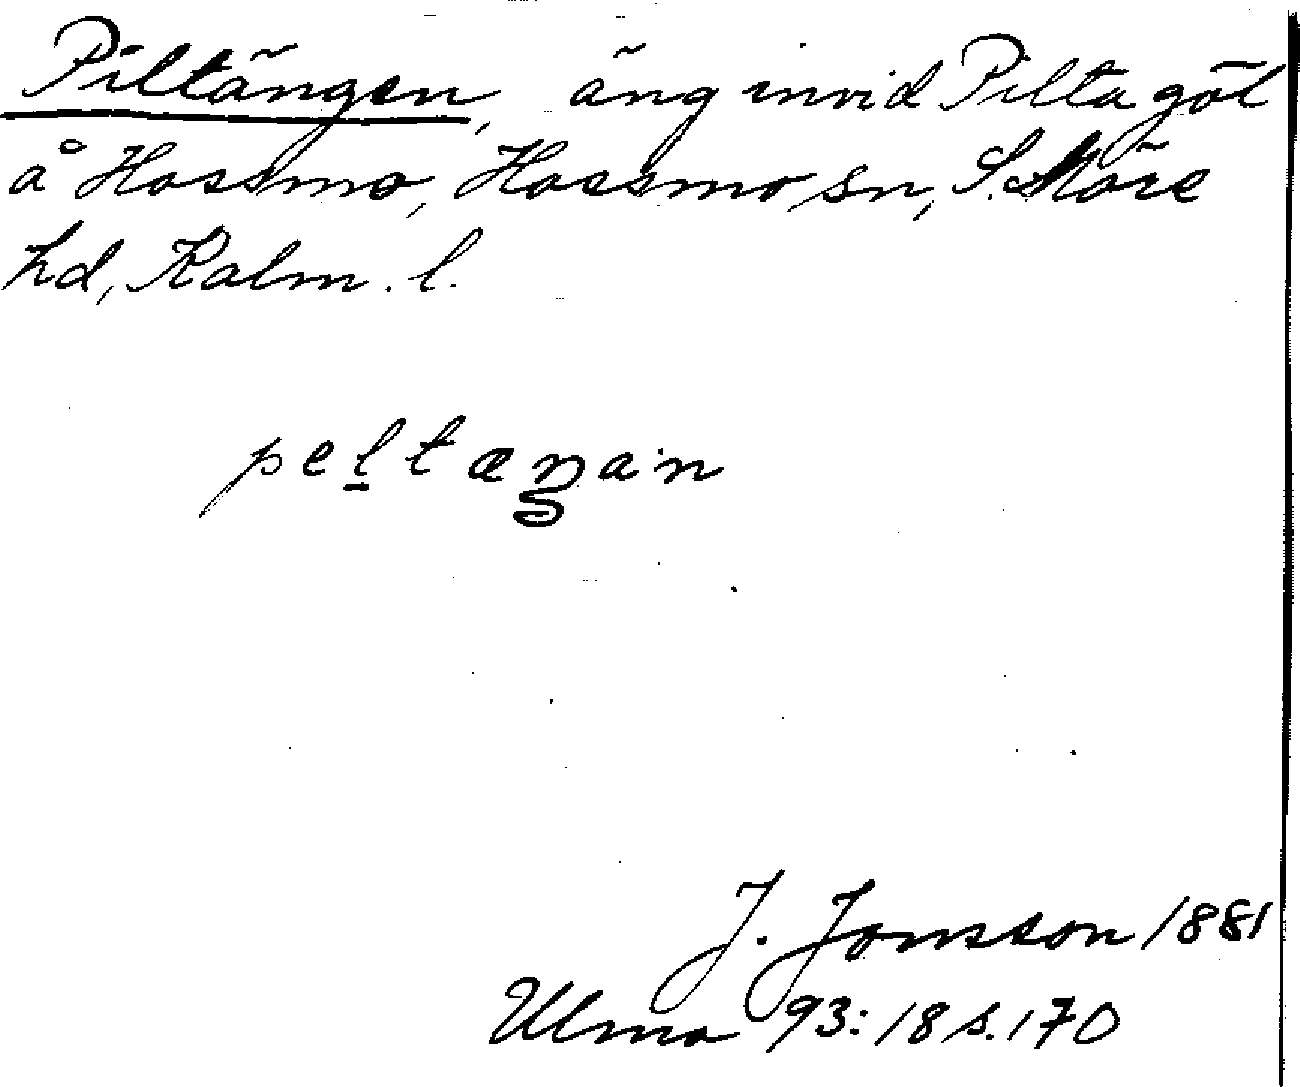 Piltängen, äng invid Pilta göl
å Hossmo, Hossmo sn, S. Möre
hd, Kalm. l.
pel̲tæŋan
J. Jonsson 1881
Ulma 93:18 s. 170